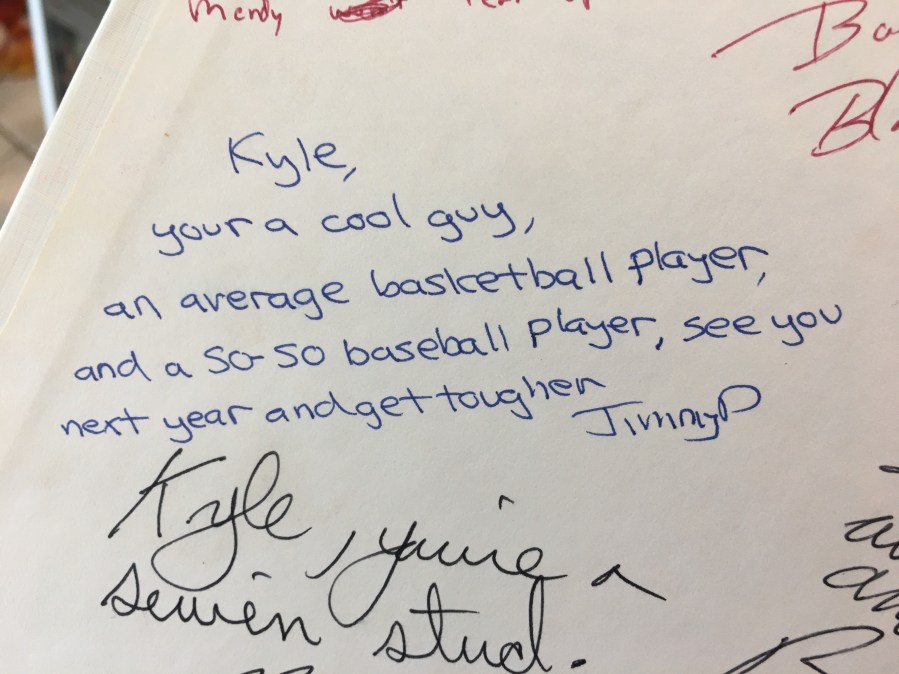 Mandy
Ba
Bl
Kyle,
your a cool guy,
an average basketball player,
and a so-so baseball player, see you
next year and get tougher
JimmyP
Kyle, you're a
sewien stud.